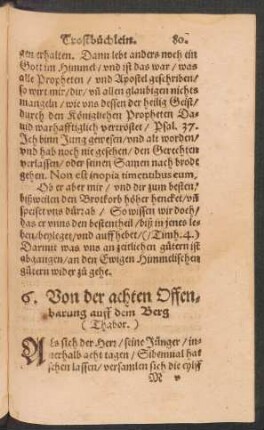 Trostbüchlein. 80.
gen erhalten. Dann lebt anders noch ein
Gott im Himmel / vnd ist das war / was
alle Propheten / vnd Apostel geschriben /
so wirt mir / dir / vñ allen glaubigen nichts
mangeln / wie vns dessen der heilig Geist /
durch den Königlichen Propheten Da-
uid warhafftiglich vertröstet / Psal. 37.
Ich binn Jung gewesen / vnd alt worden /
vnd hab noch nie gesehen / den Gerechten
verlassen / oder seinen Samen nach brodt
gehen. Non est inopia timentibus eum.
Ob er aber mir / vnd dir zum besten /
bißweilen den Brotkorb höher hencket / vñ
speiset vns dürr ab / So wissen wir doch /
das er vnns den bestentheil / biß in jenes le-
ben / beyleget / vnd auffhebet / (1. Timh. 4.)
Darmit was vns an zeitlichen gütern ist
abgangen / an den Ewigen Himmelischen
gütern wider zů gehe.
6. Von der achten Offen-
barung auff dem Berg
(Thabor.)
Als sich der Herr / seine Jünger / in-
nerhalb acht tagen / Sibenmal hat
sehen lassen / versamlen sich die eylff
M